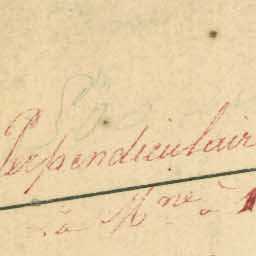 Perpendiculair
à Mne à